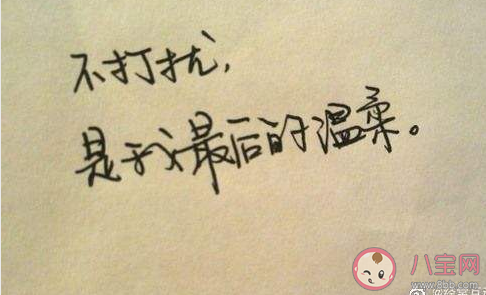 不打扰，
是我最后的温柔。
八宝网
www.8bb.com